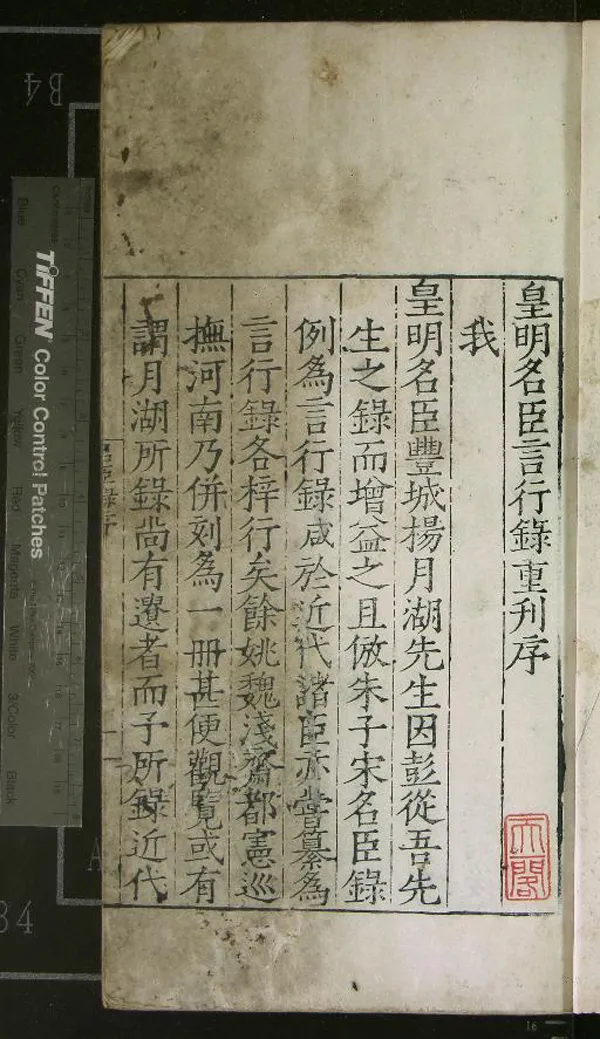 皇明名臣言行錄重刋序
我
皇明名臣豐城揚月湖先生因彭從吾先
生之錄而增益之且倣朱子宋名臣錄
例為言行錄咸於近代諸臣亦嘗纂為
言行錄各梓行矣餘姚魏淺齋都憲巡
撫河南乃併刻為一冊甚便觀覽或有
謂月湖所錄尚有遺者而予所錄近代
名臣錄序
天閣
TIFFEN Color Control Patches
Blue Cyan Green Yellow Red Magenta White 3/Color Black
B4
A
84
16